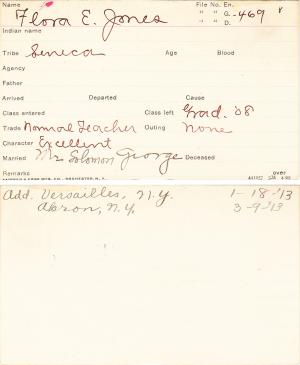 Name Flora E. Jones File No. En.
" " G. -469
Indian name " " D.
Tribe Seneca Age Blood
Agency
Father
Arrived Departed Cause
Class entered Class left Grad. '08
Trade Normal Teacher Outing None
Character Excellent
Married Mr Solomon George Deceased
Remarks over
Add. Versailles, N.Y. 1-18-'13
Akron, N.Y. 3-9-'13